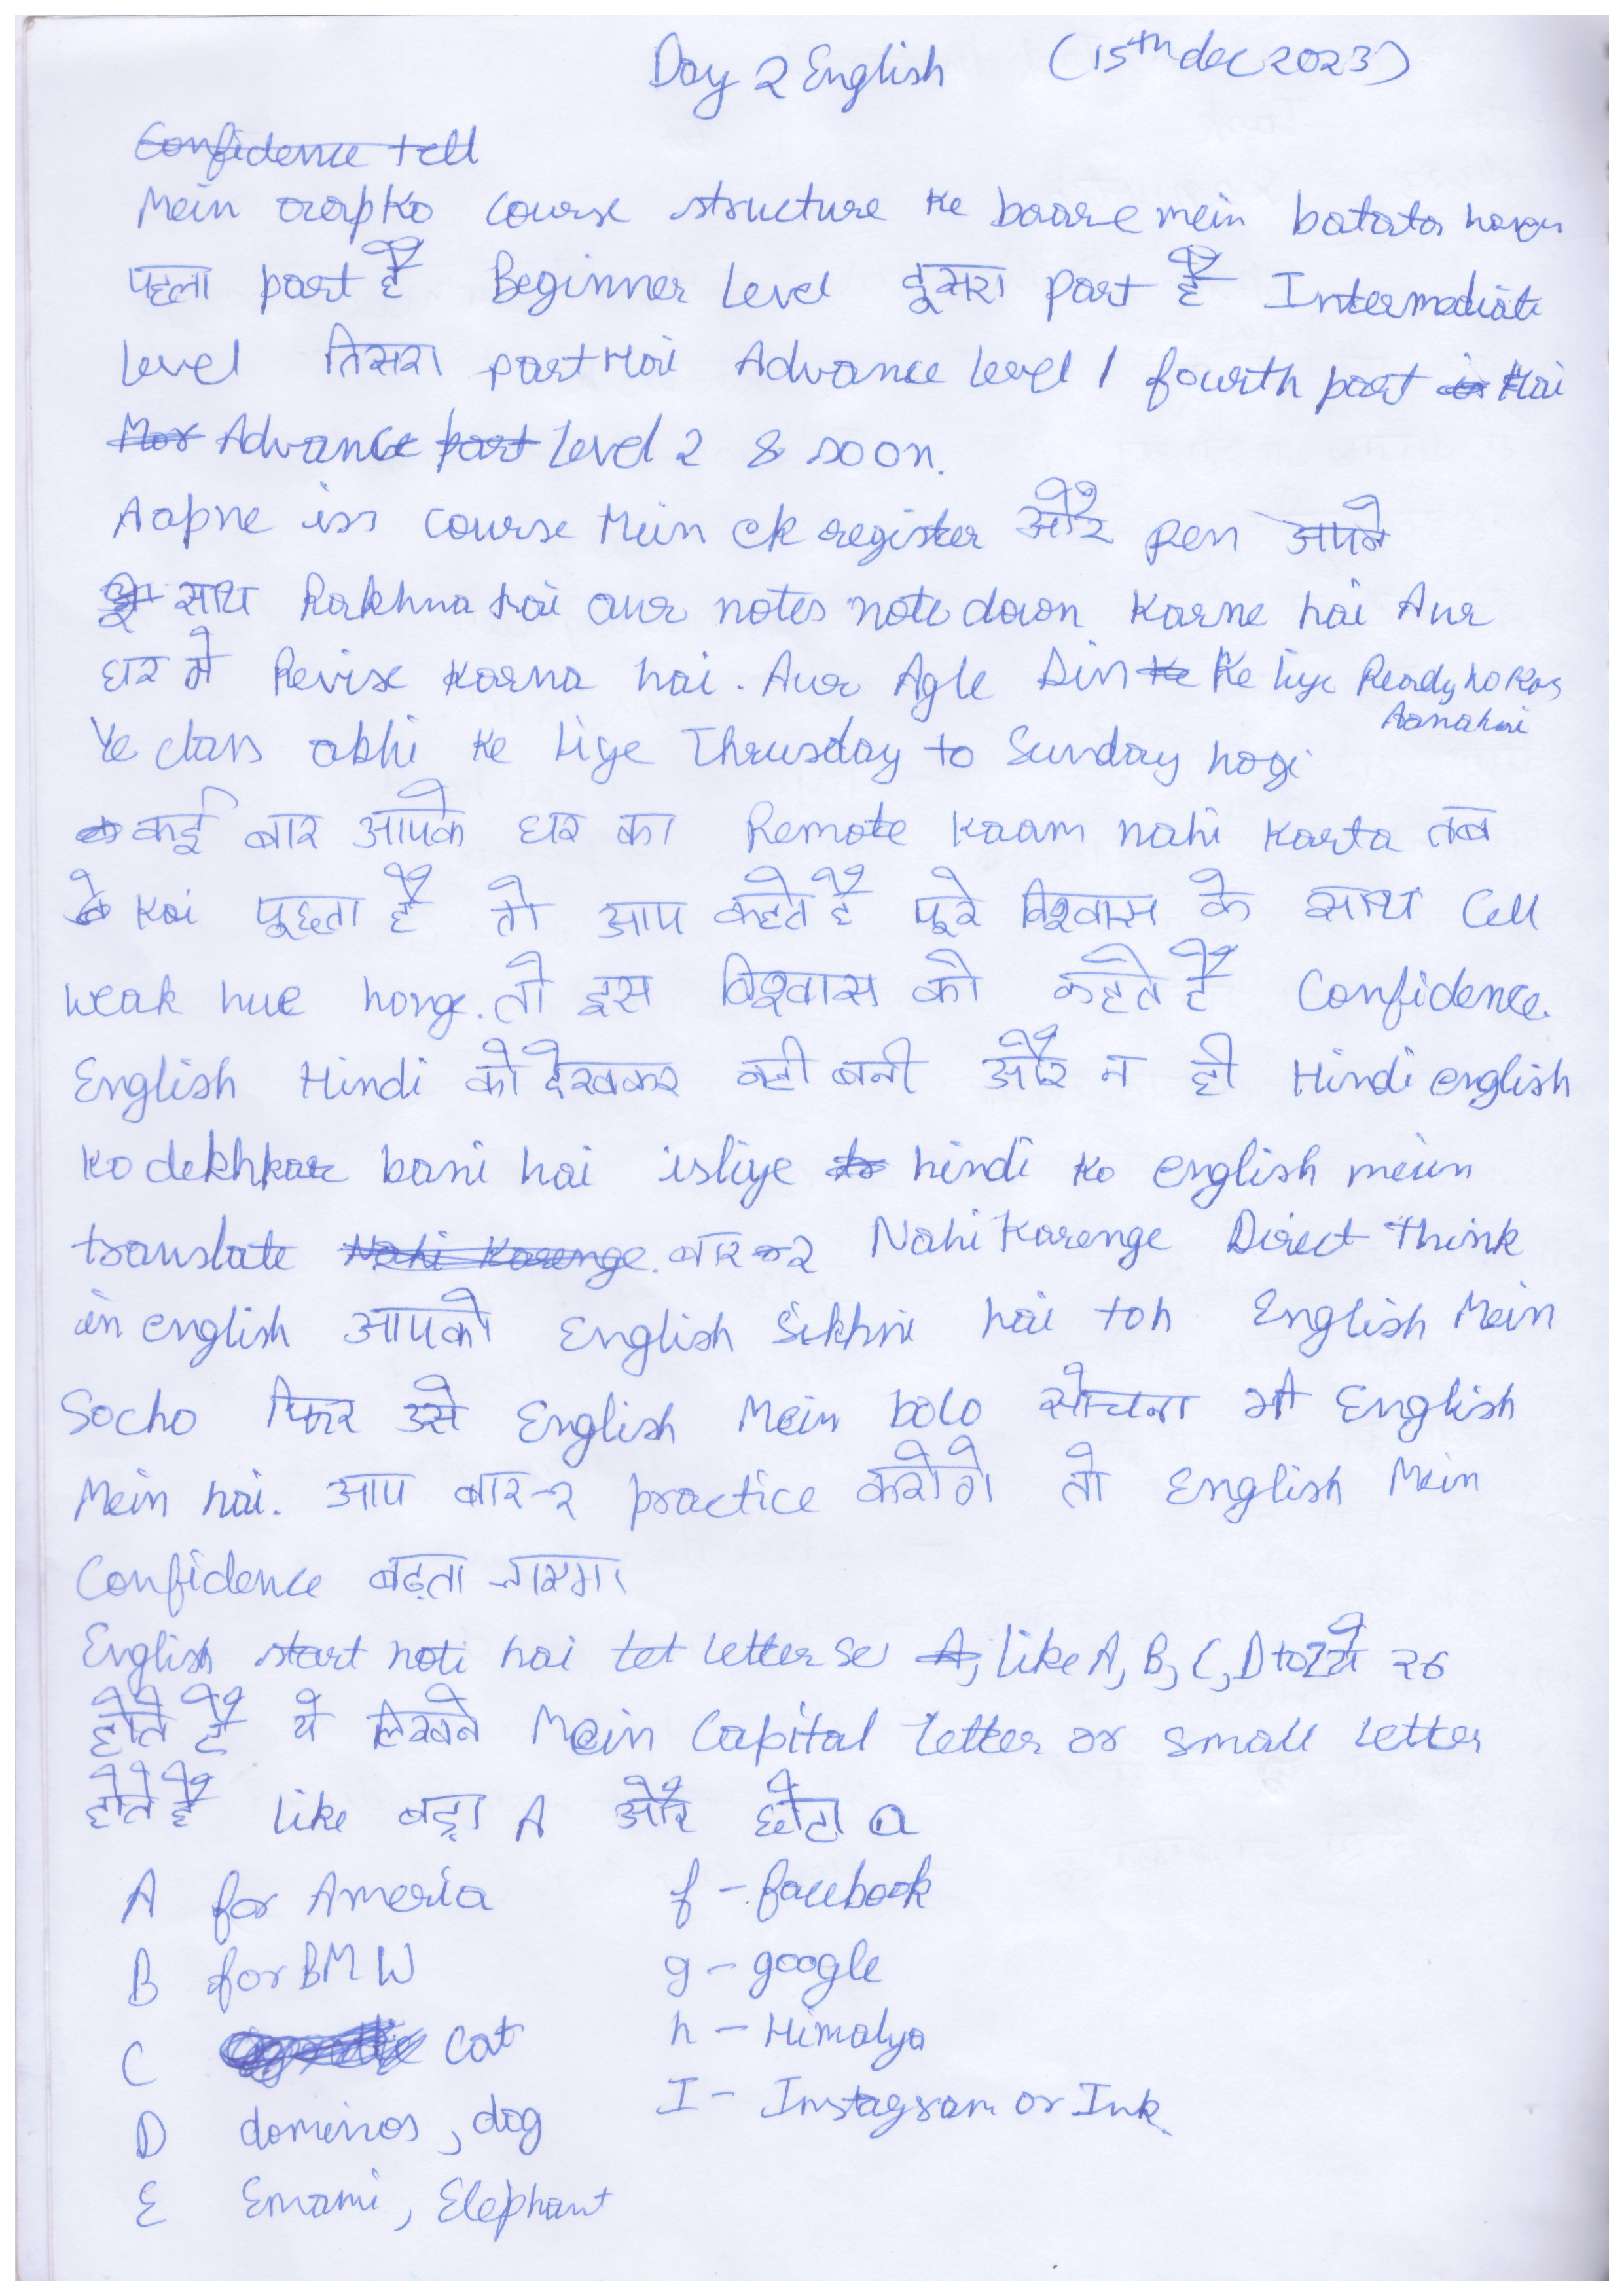 Day 2 English (15th dec 2023)
Confidence tell
Mein aapko course structure ke baare mein batata
पहला part है Beginner Level दूसरा part है Intermediate
Level तिसरा part Hai Advance level 1 fourth part is Hai
Advance part Level 2 & soon.
Aapne iss course Mein ek register और pen अपने
साथ Rakhna hai aur notes note down Karne hai Aur
घर मे Revise Karna hai. Aur Agle Din Ke Ke liye Ready ho Kar
Aana hai
Ye class abhi ke liye Thrusday to Sunday hogi
कई बार आपके घर का Remote Kaam nahi Karta तब
Koi पूछता है तो आप कहते है पूरे विश्वास के साथ Cell
weak hue honge. तो इस विश्वास को कहते है Confidence.
English Hindi को देखकर नही बनी और न ही Hindi english
Ko dekhkar bani hai isliye hindi ko english mein
translate Nahi Karenge. बार-2 Nahi Karenge Direct Think
in english आपको English Sikhni hai toh English Mein
Socho फिर उसे English Mein bolo सोचना भी English
Mein hai. आप बार-2 practice करोगे तो English Mein
Confidence बढ़ता जाएगा
English start hoti hai let letter se A, like A, B, C, D to Z ये 26
होते है ये लिखने Mein Capital letter or small letter
होते है like बड़ा A और छोटा a
A for Ameria f - facebook
B for BMW g - google
C Cat h - Himalya
D dominos, dog I - Instagram or Ink
E Emami, Elephant